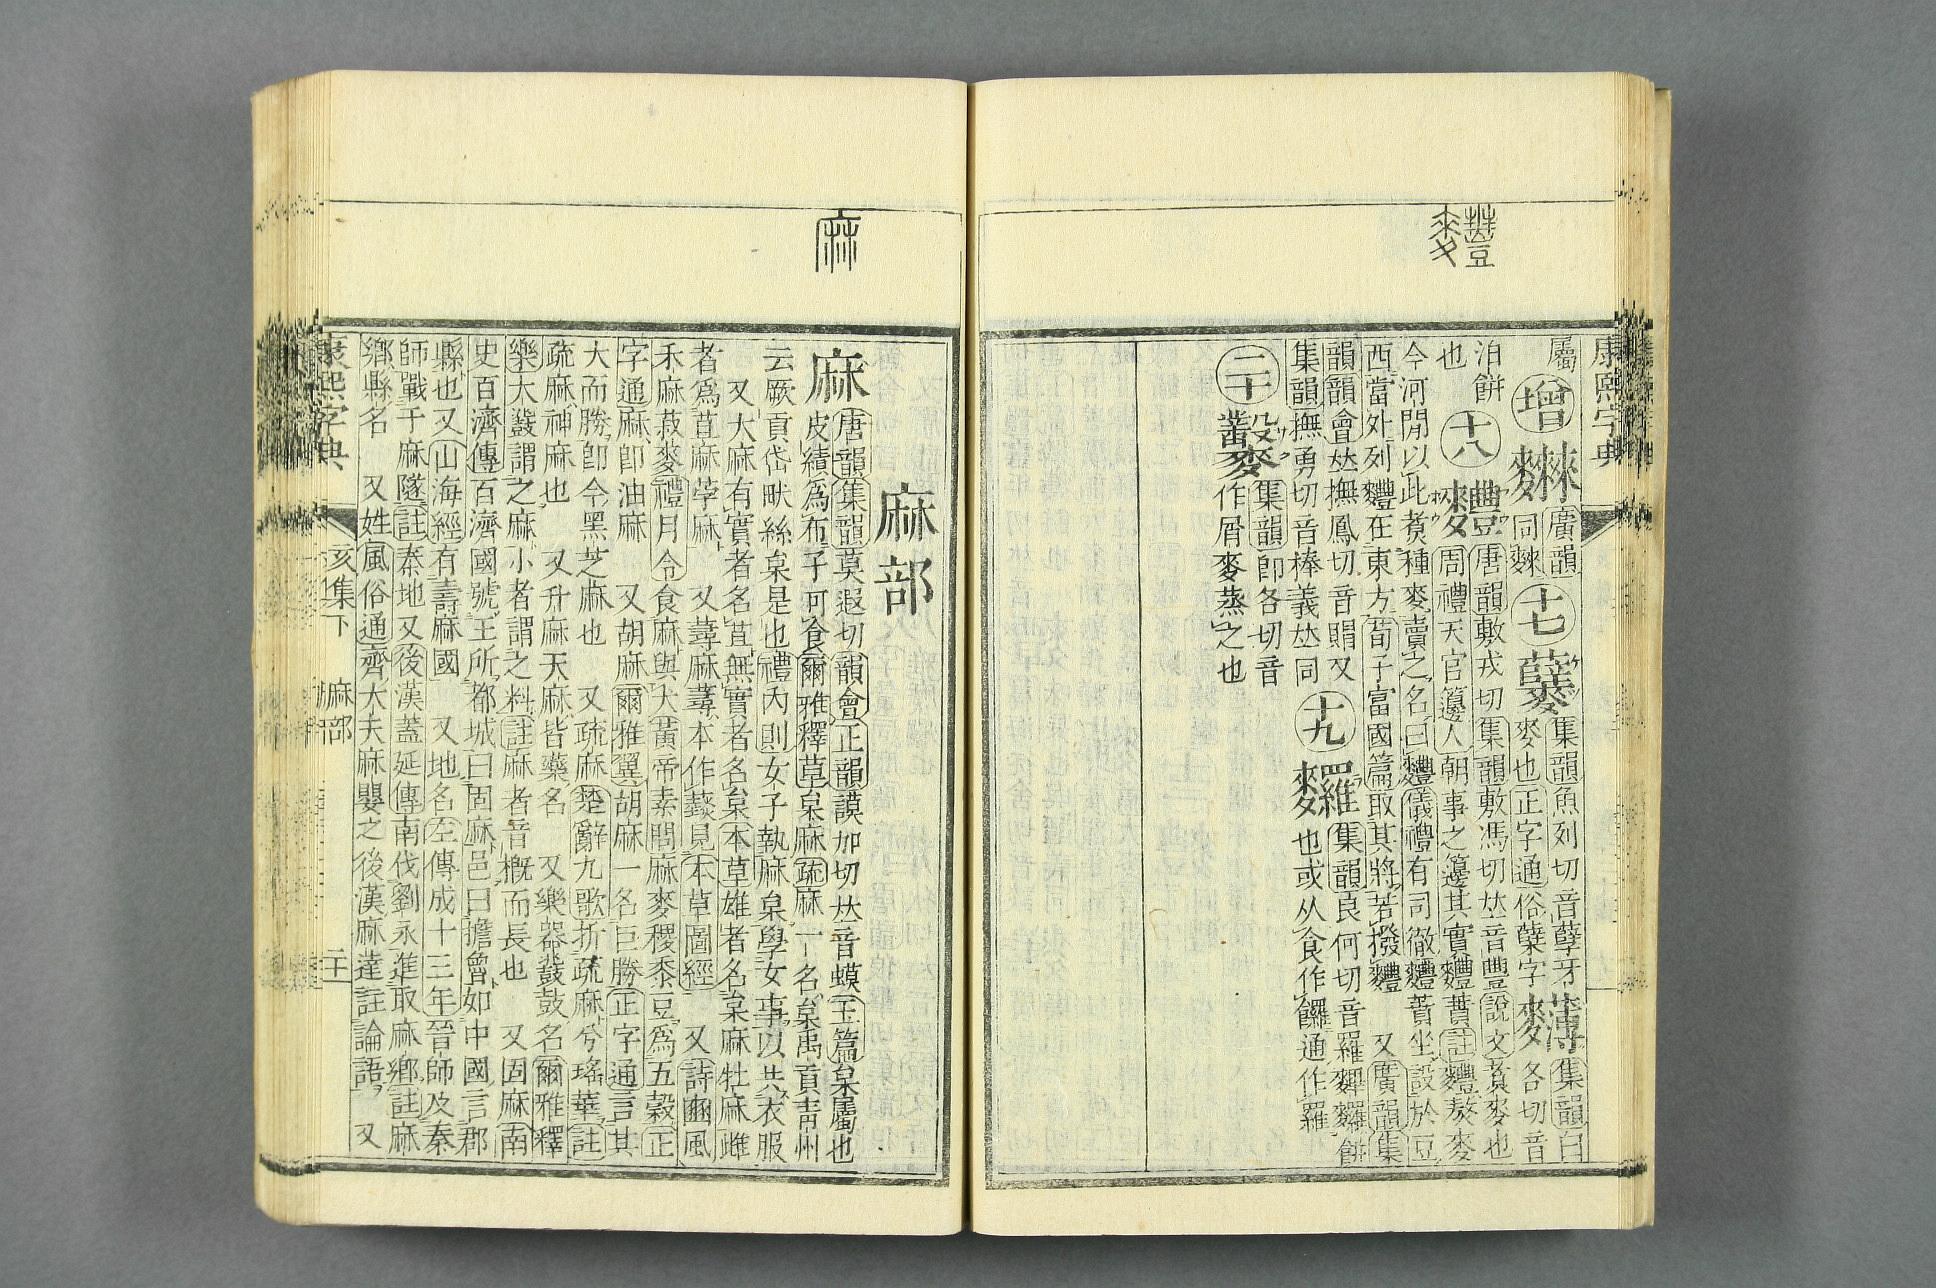 康熙字典
麷
屬
增
廣韻
同麴
十七
集韻魚列切音孽牙
麥也正字通俗糱字
䴺
集韻白各切音
泊餅
也
十八
麷
唐韻敷戎切集韻敷馮切𠀤音豐說文煑麥也
周禮天官籩人朝事之籩其實麷蕡註麷熬麥
今河閒以北煑種麥賣之名曰麷儀禮有司徹麷蕡坐設於豆
西當外列麷在東方荀子富國篇取其將若撥麷 又廣韻集
韻韻會𠀤撫鳳切音賵又
集韻撫勇切音棒義𠀤同
十九
集韻良何切音羅餅
也或从食作饠通作羅
二十
集韻卽各切音
作屑麥蒸之也
麻
麻部
麻
唐韻集韻莫遐切韻會正韻謨加切𠀤音蟆玉篇枲屬也
皮績爲布子可食爾雅釋草枲麻疏麻一名枲禹貢靑州
云厥貢岱畎絲枲是也禮內則女子執麻枲學女事以共衣服
又大麻有實者名苴無實者名枲本草雄者名枲麻牡麻雌
者爲苴麻荸麻 又蕁麻蕁本作䕭見本草圖經 又詩豳風
禾麻菽麥禮月令食麻與犬黃帝素問麻麥稷黍豆爲五穀正
字通麻卽油麻 又胡麻爾雅翼胡麻一名巨勝正字通言其
大而勝卽今黑芝麻也 又疏麻楚辭九歌折疏麻兮瑤華註
疏麻神麻也 又升麻天麻皆藥名 又樂器鼗鼓名爾雅釋
樂大鼗謂之麻小者謂之料註麻者音槪而長也 又固麻南
史百濟傳百濟國號王所都城曰固麻邑曰擔魯如中國言郡
縣也又山海經有壽麻國 又地名左傳成十三年晉師及秦
師戰于麻隧註秦地又後漢蓋延傳南伐劉永進取麻鄉註麻
鄉縣名 又姓風俗通齊大夫麻嬰之後漢麻達註論語 又
康熙字典
亥集下
麻部
二十一